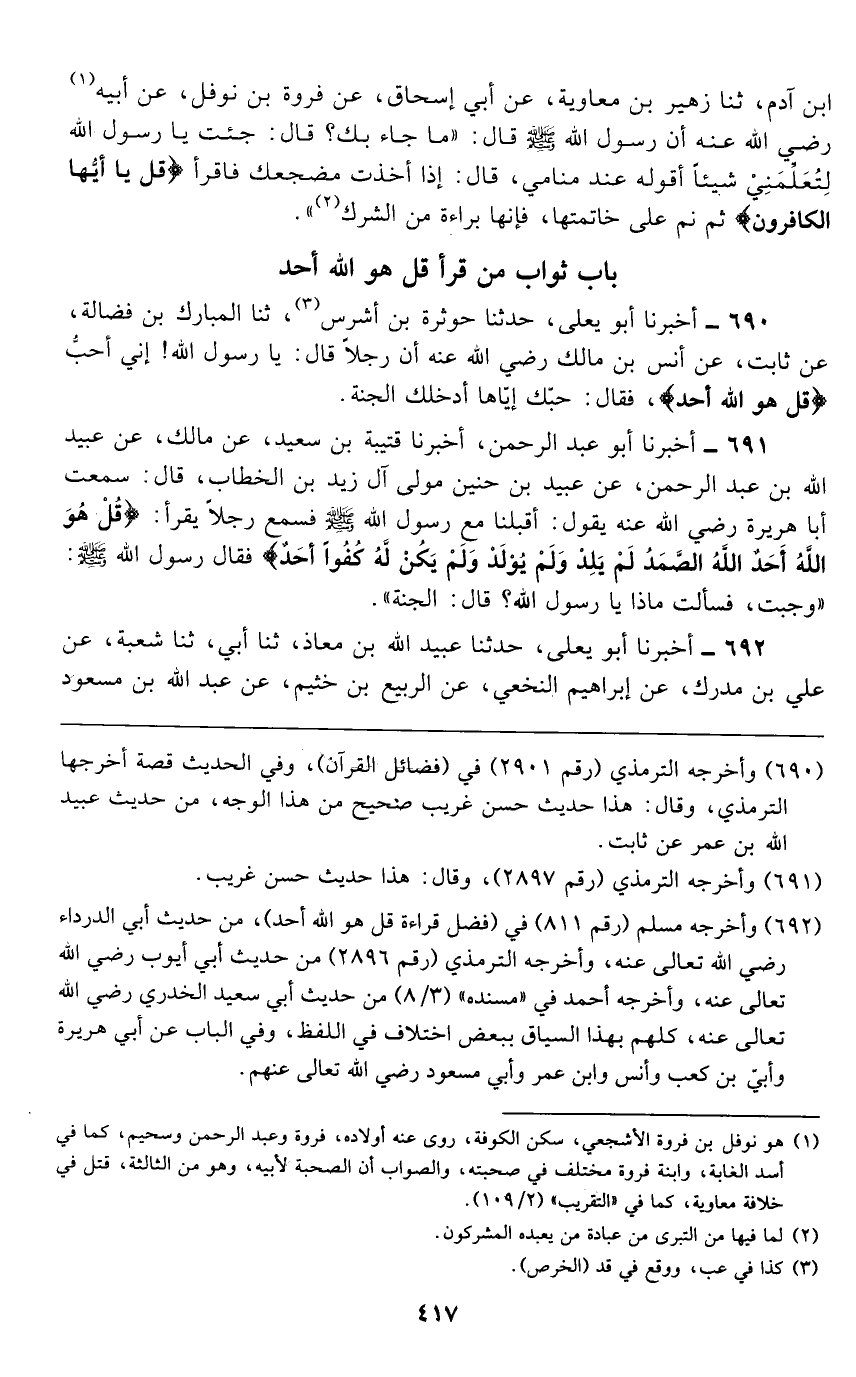 ابن آدم، ثنا زهير بن معاوية، عن أبي إسحاق، عن فروة بن نوفل، عن أبيه(١)
رضي الله عنه أن رسول الله ﷺ قال: «ما جاء بك؟ قال: جئت يا رسول الله
لِتُعَلِّمَنِيْ شيئاً أقوله عند منامي، قال: إذا أخذت مضجعك فاقرأ ﴿قل يا أيُّها
الكافرون﴾ ثم نم على خاتمتها، فإنها براءة من الشرك(٢)».
باب ثواب من قرأ قل هو الله أحد
٦٩٠ ـ أخبرنا أبو يعلى، حدثنا حوثرة بن أشرس(٣)، ثنا المبارك بن فضالة،
عن ثابت، عن أنس بن مالك رضي الله عنه أن رجلاً قال: يا رسول الله! إني أحبُّ
﴿قل هو الله أحد﴾، فقال: حبّك إيّاها أدخلك الجنة.
٦٩١ ـ أخبرنا أبو عبد الرحمن، أخبرنا قتيبة بن سعيد، عن مالك، عن عبيد
الله بن عبد الرحمن، عن عبيد بن حنين مولى آل زيد بن الخطاب، قال: سمعت
أبا هريرة رضي الله عنه يقول: أقبلنا مع رسول الله ﷺ فسمع رجلاً يقرأ: ﴿قُلْ هُوَ
اللَّهُ أَحَدٌ اللَّهُ الصَّمَدُ لَمْ يَلِدْ وَلَمْ يُوْلَدْ وَلَمْ يَكُنْ لَّهُ كُفُواً أحَدٌ﴾ فقال رسول الله ﷺ:
«وجبت، فسألت ماذا يا رسول الله؟ قال: الجنة».
٦٩٢ ـ أخبرنا أبو يعلى، حدثنا عبيد الله بن معاذ، ثنا أبي، ثنا شعبة، عن
علي بن مدرك، عن إبراهيم النخعي، عن الربيع بن خثيم، عن عبد الله بن مسعود
(٦٩٠) وأخرجه الترمذي (رقم ٢٩٠١) في (فضائل القرآن)، وفي الحديث قصة أخرجها
الترمذي، وقال: هذا حديث حسن غريب صحيح من هذا الوجه، من حديث عبيد
الله بن عمر عن ثابت.
(٦٩١) وأخرجه الترمذي (رقم ٢٨٩٧)، وقال: هذا حديث حسن غريب.
(٦٩٢) وأخرجه مسلم (رقم ٨١١) في (فضل قراءة قل هو الله أحد)، من حديث أبي الدرداء
رضي الله تعالى عنه، وأخرجه الترمذي (رقم ٢٨٩٦) من حديث أبي أيوب رضي الله
تعالى عنه، وأخرجه أحمد في «مسنده» (٨/٣) من حديث أبي سعيد الخدري رضي الله
تعالى عنه، كلهم بهذا السياق ببعض اختلاف في اللفظ، وفي الباب عن أبي هريرة
وأبيّ بن كعب وأنس وابن عمر وأبي مسعود رضي الله تعالى عنهم.
(١) هو نوفل بن فروة الأشجعي، سكن الكوفة، روى عنه أولاده، فروة وعبد الرحمن وسحيم، كما في
أسد الغابة، وابنة فروة مختلف في صحبته، والصواب أن الصحبة لأبيه، وهو من الثالثة، قتل في
خلافة معاوية، كما في «التقريب» (١٠٩/٢).
(٢) لما فيها من التبرى من عبادة من يعبده المشركون.
(٣) كذا في عب، ووقع في قد (الخرص).
٤١٧